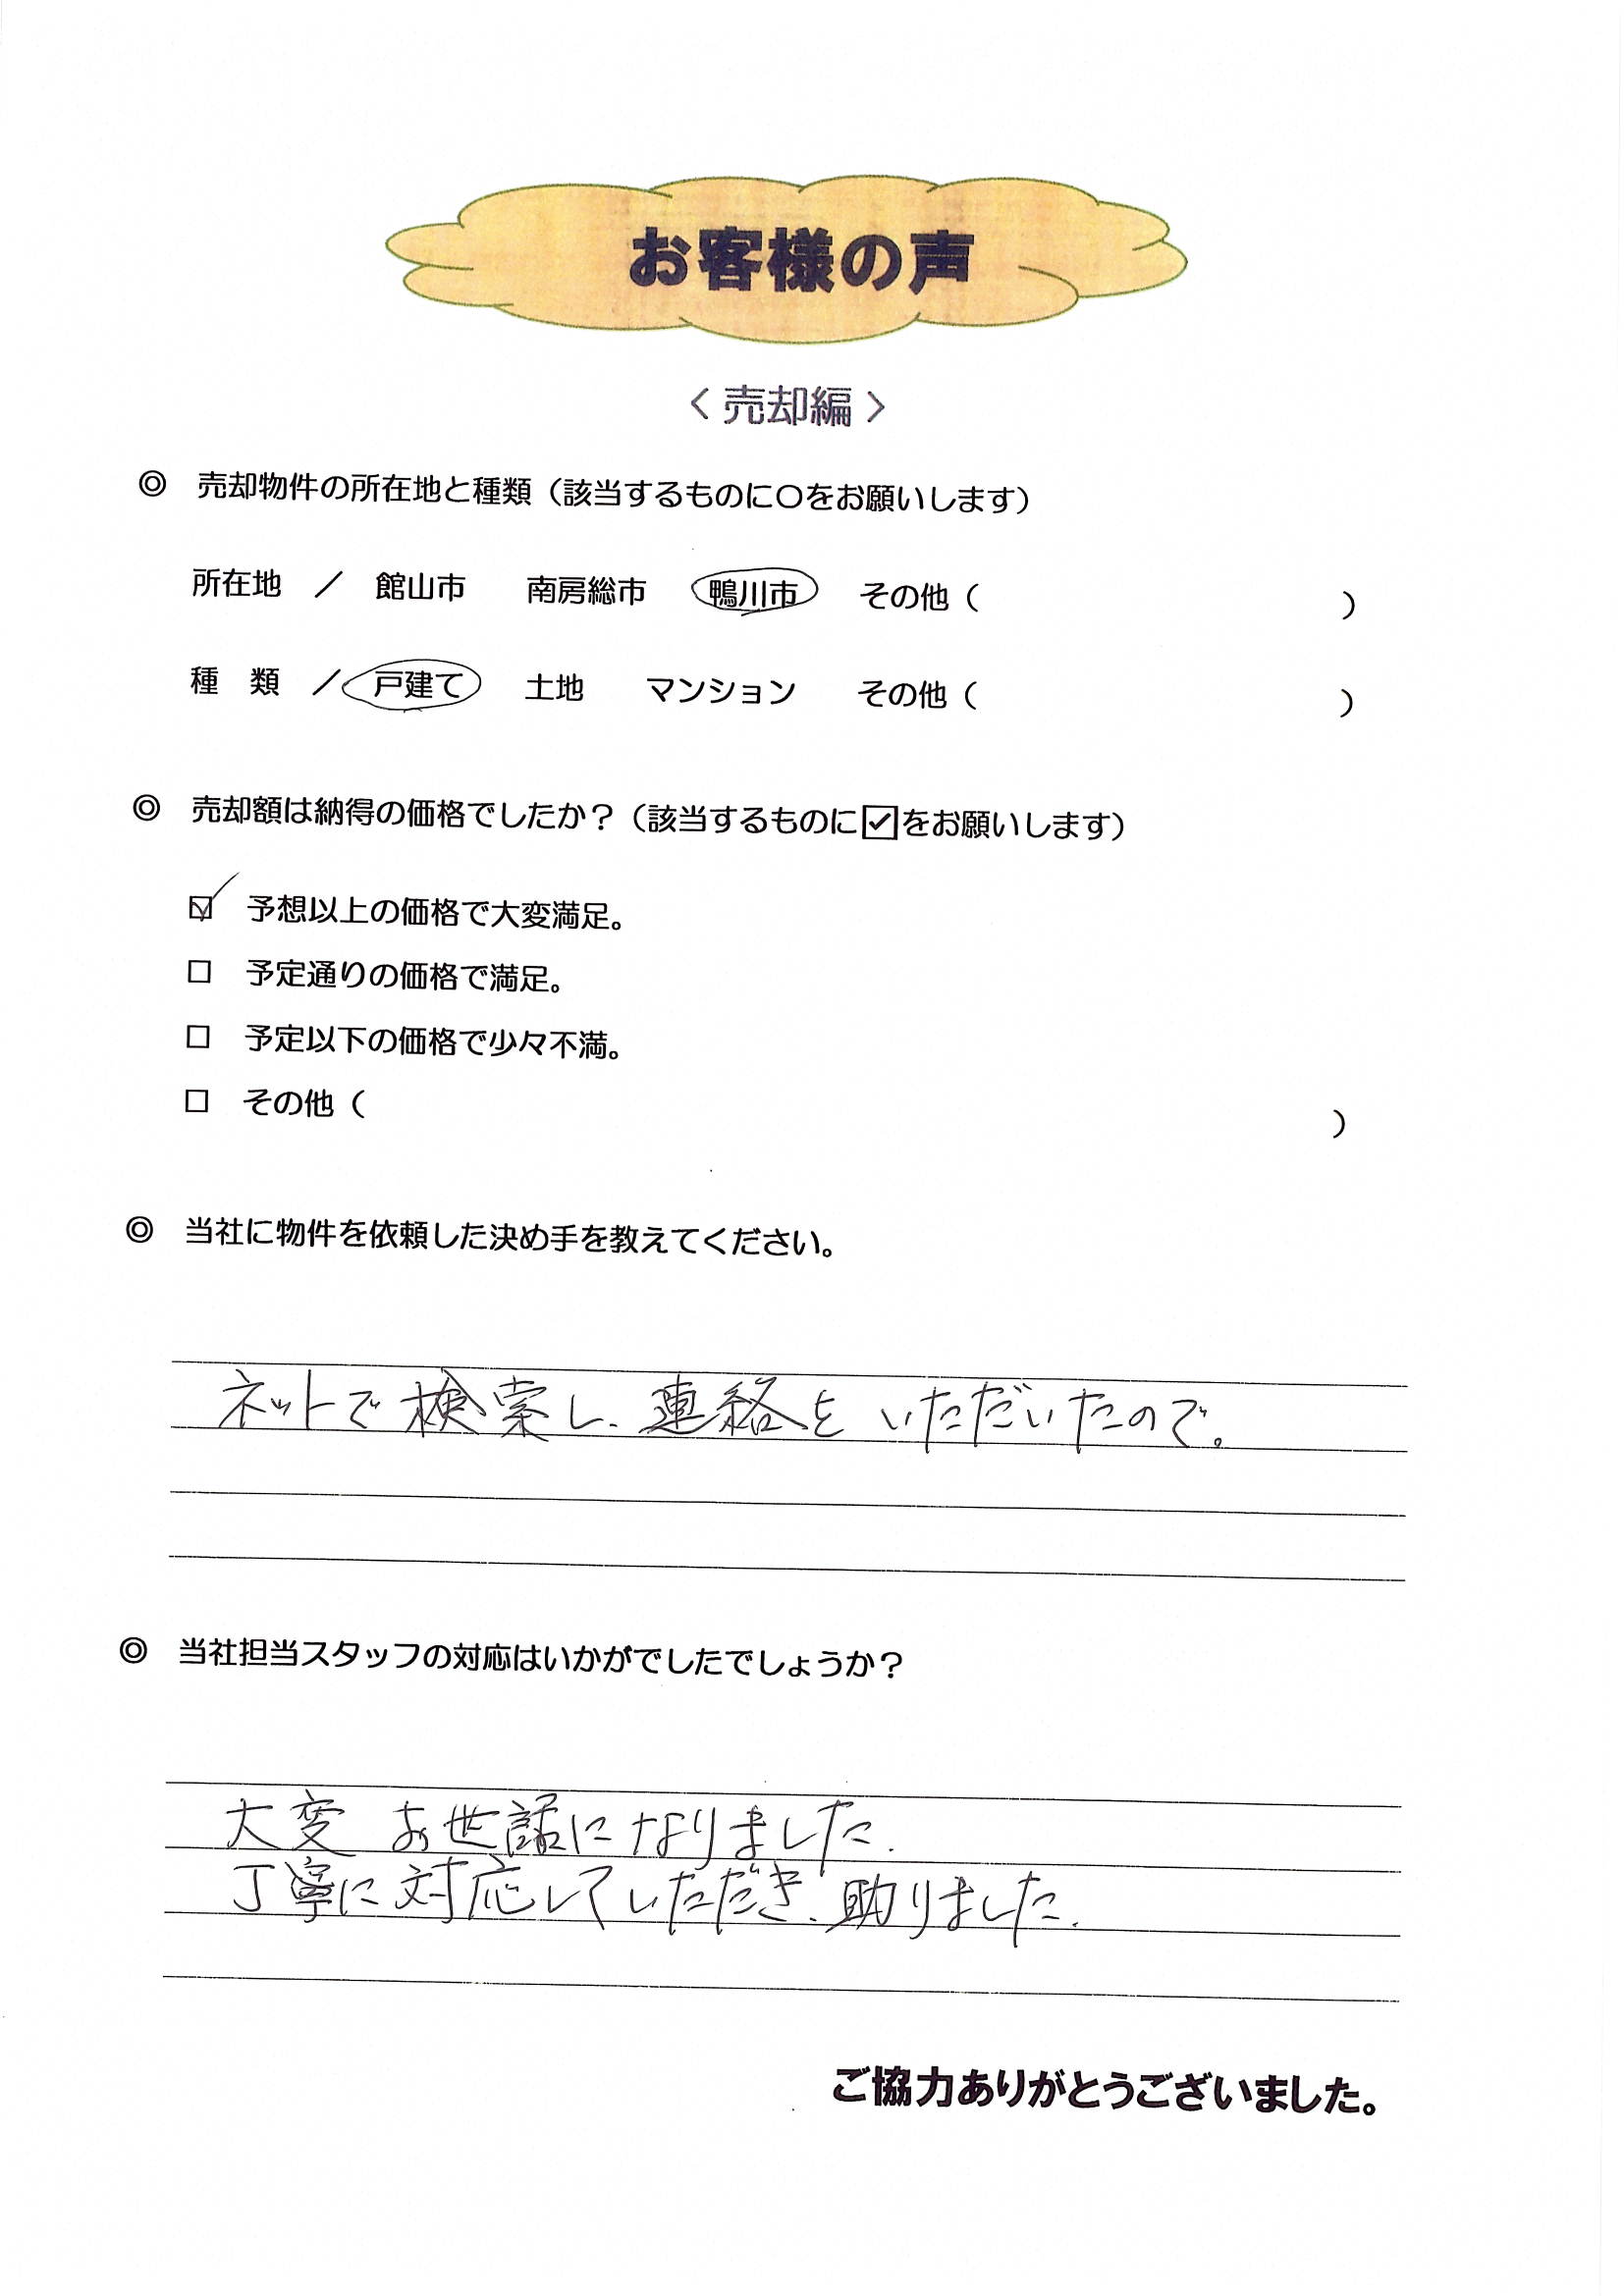 お客様の声
〈 売却編 〉
◎ 売却物件の所在地と種類（該当するものに〇をお願いします）
所在地 ／ 館山市 南房総市 鴨川市 その他（ ）
種 類 ／ 戸建て 土地 マンション その他（ ）
◎ 売却額は納得の価格でしたか？（該当するものに☑をお願いします）
☑ 予想以上の価格で大変満足。
□ 予定通りの価格で満足。
□ 予定以下の価格で少々不満。
□ その他（ ）
◎ 当社に物件を依頼した決め手を教えてください。
ネットで検索し、連絡をいただいたので。
◎ 当社担当スタッフの対応はいかがでしたでしょうか？
大変お世話になりました。
丁寧に対応していただき、助りました。
ご協力ありがとうございました。